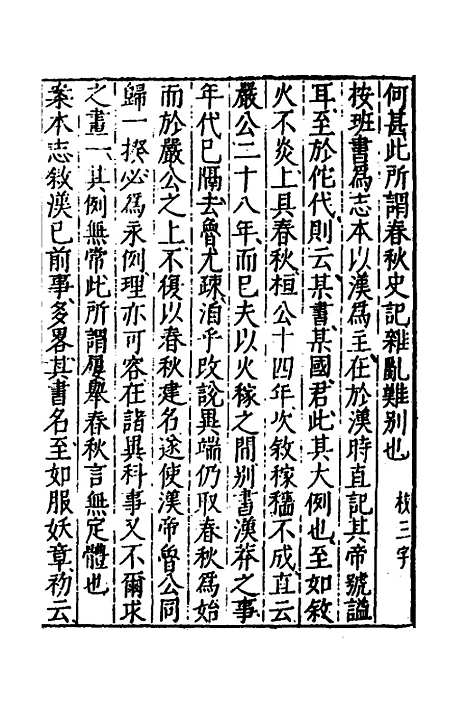 何甚此所謂春秋史記雜亂難別也　校三字
按班書爲志本以漢爲主在於漢時直記其帝號謚
耳至於佗代則云某書某國君此其大例也至如敘
火不炎上具春秋桓公十四年次敘稼穡不成直云
嚴公二十八年而已夫以火稼之間別書漢莽之事
年代已隔去魯尤疎洎乎改說異端仍取春秋爲始
而於嚴公之上不復以春秋建名遂使漢帝魯公同
歸一揆必爲永例理亦可容在諸異科事又不爾求
之畫一其例無常此所謂屢舉春秋言無定體也
案本志敘漢已前事多畧其書名至如服妖章初云